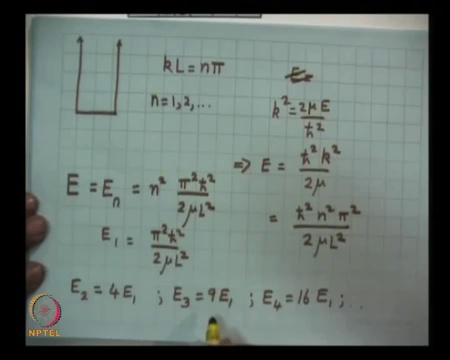 kL = nπ
n = 1, 2, ...
k² = 2μE / ħ²
⇒ E = ħ²k² / 2μ
= ħ²n²π² / 2μL²
E = Eₙ = n² π²ħ² / 2μL²
E₁ = π²ħ² / 2μL²
E₂ = 4E₁ ; E₃ = 9E₁ ; E₄ = 16E₁ ; ..
NPTEL